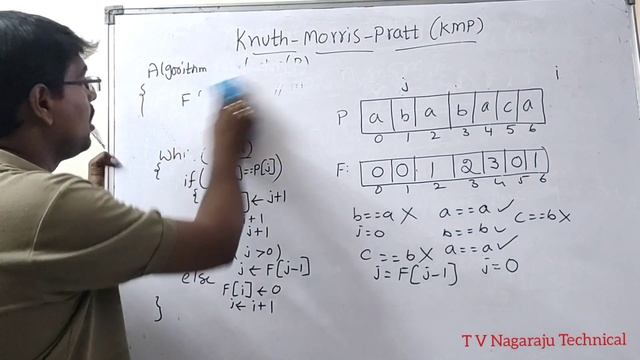 Knuth-Morris-Pratt (KMP)
Algorithm
{ F
whi
{
if( ==P[j])
{ ← j+1
+1
j+1
j >0)
j ← F[j-1]
else
F[i] ← 0
i ← i+1
}
j i
P a b a b a c a
0 1 2 3 4 5 6
F: 0 0 1 2 3 0 1
0 1 2 3 4 5 6
b==a X a==a ✓ C==b X
j=0 b==b ✓
C==b X a==a ✓
j=F[j-1] j=0
T V Nagaraju Technical